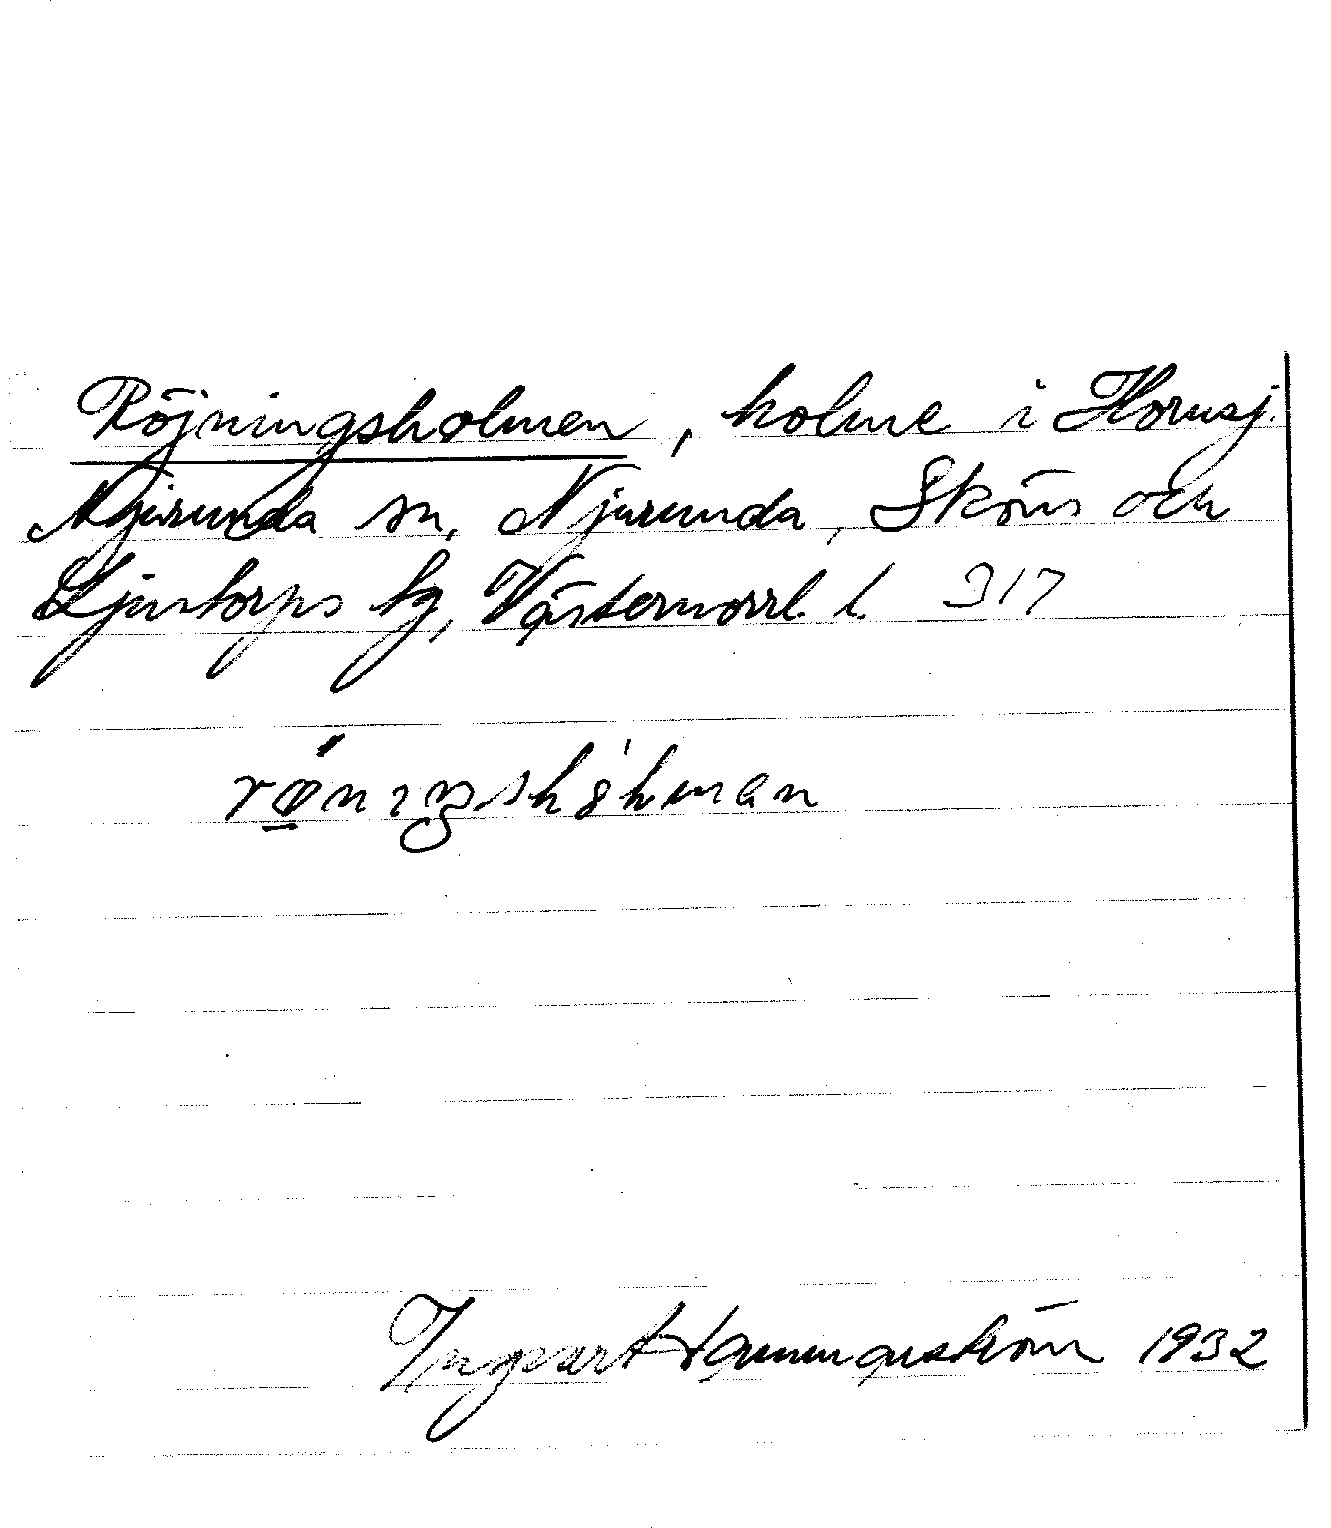 Röjningsholmen, holme i Hornsj.
Njurunda sn, Njurunda, Sköns och
Ljustorps tg, Västernorrl. l. 317
Ingvart Hammarström 1932